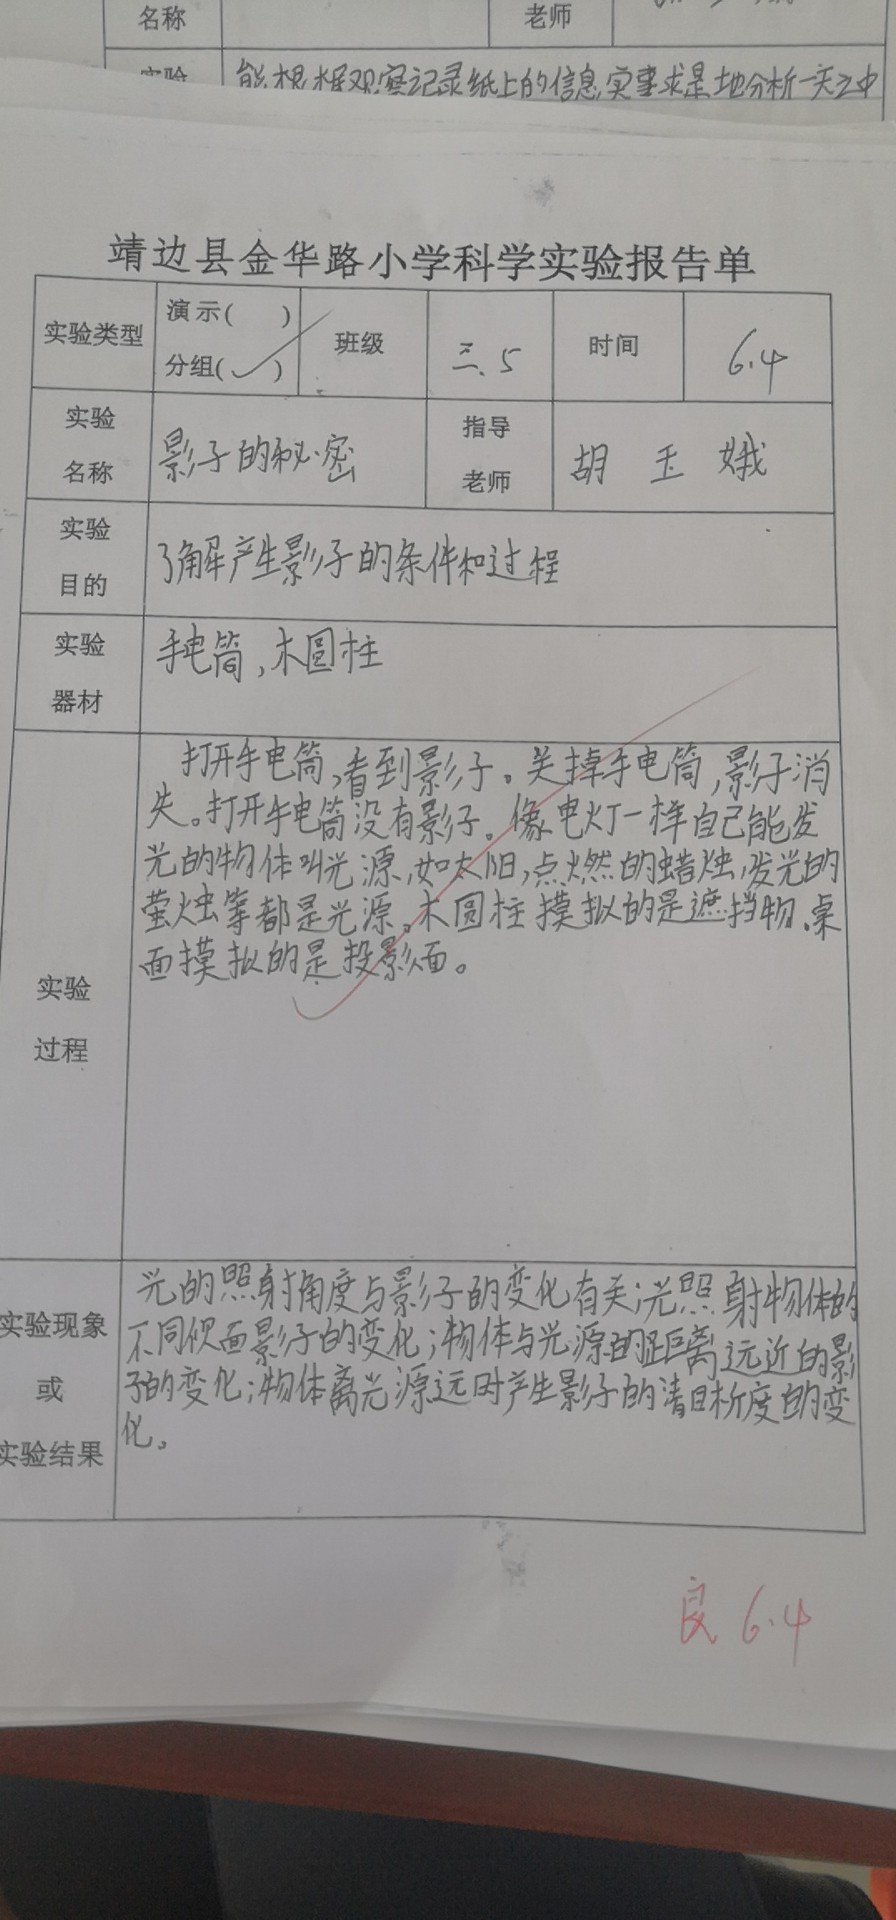 名称
老师
实验
能根据观察记录纸上的信息,实事求是地分析一天之中
靖边县金华路小学科学实验报告单
实验类型
演示( )
分组(✓)
班级
三.5
时间
6.4
实验
名称
影子的秘密
指导
老师
胡玉娥
实验
目的
了解产生影子的条件和过程
实验
器材
手电筒,木圆柱
实验
过程
打开手电筒,看到影子。关掉手电筒,影子消
失。打开手电筒没有影子。像电灯一样自己能发
光的物体叫光源,如太阳,点燃的蜡烛,发光的
萤烛等都是光源。木圆柱摸拟的是遮挡物、桌
面摸拟的是投影面。
实验现象
或
实验结果
光的照射角度与影子的变化有关;光照射物体的
不同侧面影子的变化;物体与光源的距离远近的影
子的变化;物体离光源远时产生影子的清晰度的变
化。
良 6.4